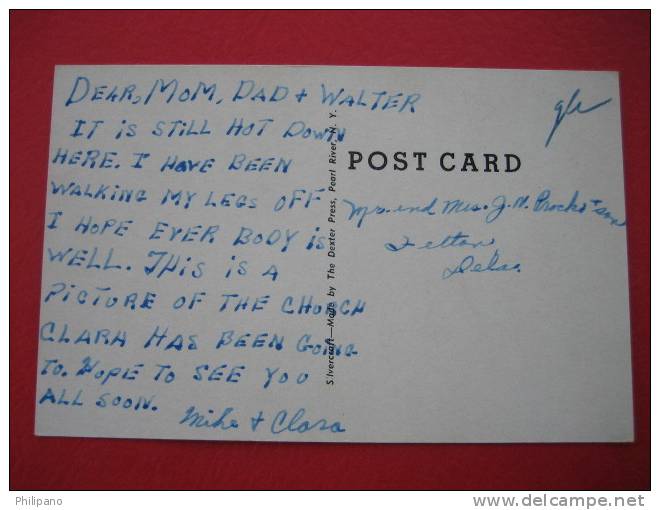 DEAR, MOM, DAD + WALTER
IT IS STILL HOT DOWN
HERE. I HAVE BEEN
WALKING MY LEGS OFF
I HOPE EVER BODY IS
WELL. THIS IS A
PICTURE OF THE CHURCH
CLARA HAS BEEN GOING
TO. HOPE TO SEE YOU
ALL SOON.
Mike + Clara
Silvercraft—Made by The Dexter Press, Pearl River, N. Y.
POST CARD
Mr. and Mrs. J. N. + son
Felton
Dela.
Philipano
www.delcampe.net